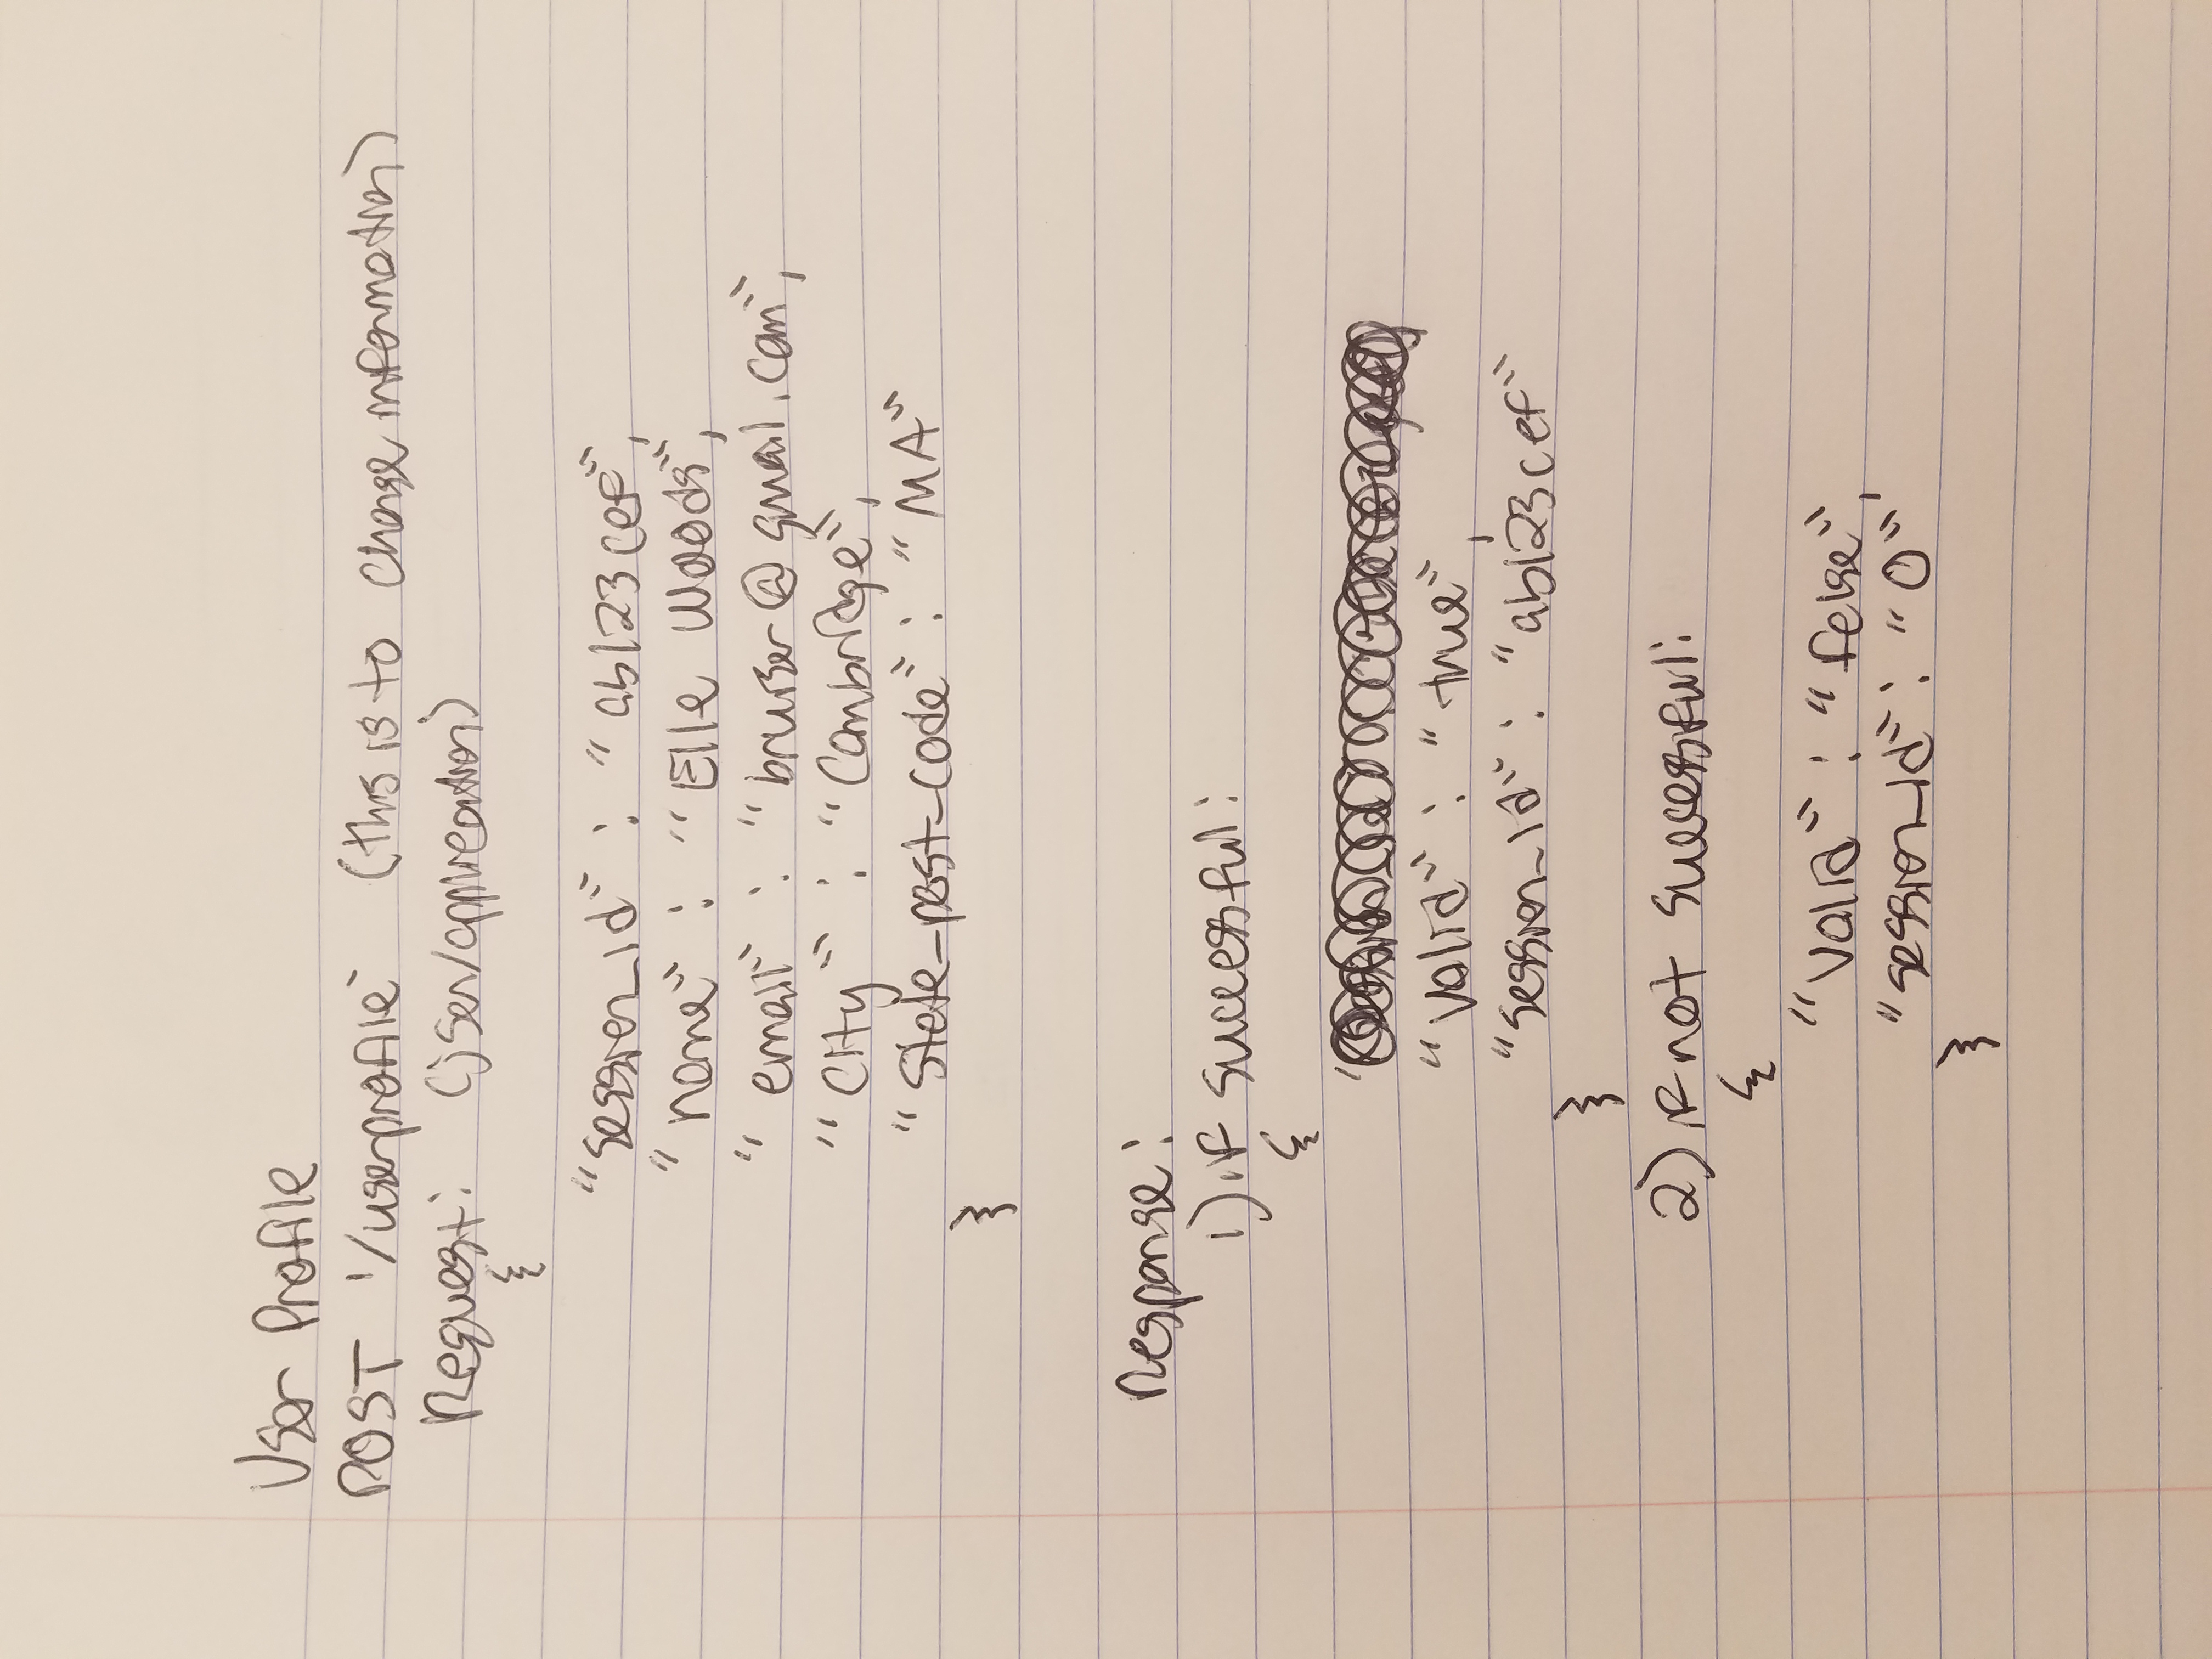 User Profile
POST '/userprofile' (this is to change information)
Request: (json/application)
{
"session_id" : "ab123cef",
"name" : "Elle Woods",
"email" : "bruiser@gmail.com",
"City" : "Cambridge",
"State_post_code" : "MA"
}
Response:
1) if successful:
{
"valid" : "true",
"session_id" : "ab123cef"
}
2) if not successful:
{
"valid" : "false",
"session_id" : "0"
}